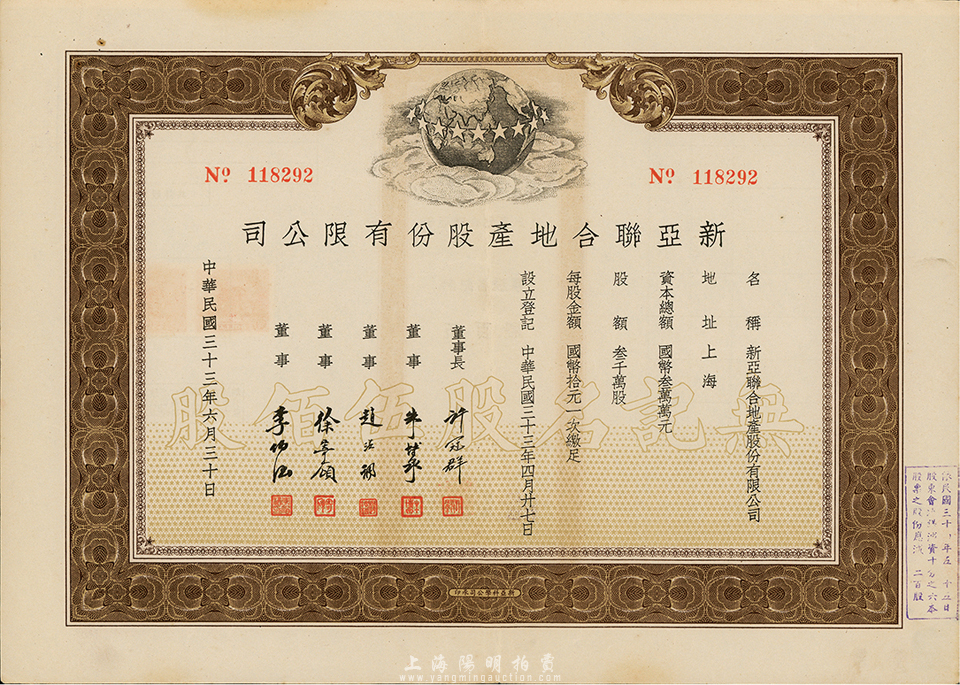 No 118292
No 118292
新亞聯合地產股份有限公司
名稱 新亞聯合地產股份有限公司
地址 上海
資本總額 國幣叁萬萬元
股額 叁千萬股
每股金額 國幣拾元一次繳足
設立登記 中華民國三十三年四月廿七日
董事長 許冠群
董事
董事
董事 徐寄廎
董事
中華民國三十三年六月三十日
無記名股伍佰股
民國三十 年 日
股東會 資十 之六本
股票之股份應減 二百股
上海陽明拍賣
www.yangmingauction.com